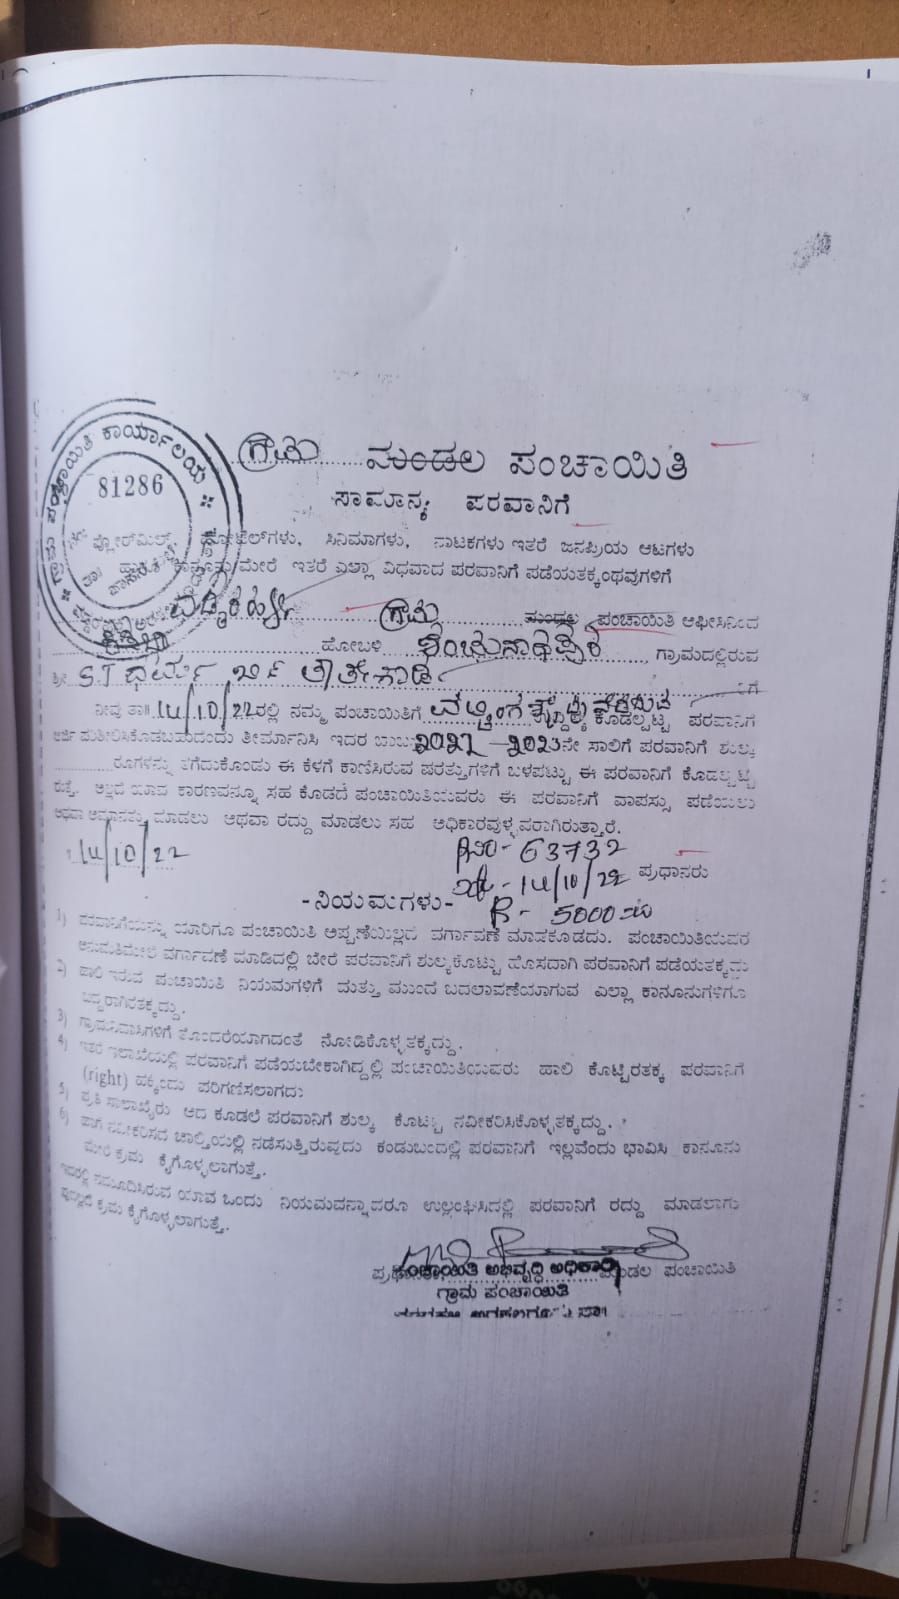 ಗ್ರಾಮ ಮಂಡಲ ಪಂಚಾಯಿತಿ
ಸಾಮಾನ್ಯ ಪರವಾನಿಗೆ
ಗ್ರಾಮ ಪಂಚಾಯಿತಿ ಕಾರ್ಯಾಲಯ
81286
ಫ್ಲೋರ್‌ಮಿಲ್ಸ್, ಹೋಟೆಲ್‌ಗಳು, ಸಿನಿಮಾಗಳು, ನಾಟಕಗಳು ಇತರೆ ಜನಪ್ರಿಯ ಆಟಗಳು
ಕಾನೂನು ಮೇರೆ ಇತರೆ ಎಲ್ಲಾ ವಿಧವಾದ ಪರವಾನಿಗೆ ಪಡೆಯತಕ್ಕಂಥವುಗಳಿಗೆ
ಗ್ರಾಮ ಮಂಡಲ ಪಂಚಾಯಿತಿ ಆಫೀಸಿನಿಂದ
ಹೋಬಳಿ ಗ್ರಾಮದಲ್ಲಿರುವ
ಶ್ರೀ S.T ಧರ್ಮ
ಗೆ
ನೀವು ತಾ॥ 14/10/22 ರಲ್ಲಿ ನಮ್ಮ ಪಂಚಾಯಿತಿಗೆ ಕೊಡಲ್ಪಟ್ಟ ಪರವಾನಿಗೆ
ಅರ್ಜಿ ತೀರ್ಮಾನಿಸಿ ಇದರ ಬಾಬು 2022-2023ನೇ ಸಾಲಿಗೆ ಪರವಾನಿಗೆ ಶುಲ್ಕ
ರೂಗಳನ್ನು ತೆಗೆದುಕೊಂಡು ಈ ಕೆಳಗೆ ಕಾಣಿಸಿರುವ ಷರತ್ತುಗಳಿಗೆ ಒಳಪಟ್ಟು ಈ ಪರವಾನಿಗೆ ಕೊಡಲ್ಪಟ್ಟಿ
ರುತ್ತೆ. ಅಲ್ಲದೆ ಯಾವ ಕಾರಣವನ್ನೂ ಸಹ ಕೊಡದೆ ಪಂಚಾಯಿತಿಯವರು ಈ ಪರವಾನಿಗೆ ವಾಪಸ್ಸು ಪಡೆಯಲು
ಅಥವಾ ಅಮಾನತ್ತು ಮಾಡಲು ಅಥವಾ ರದ್ದು ಮಾಡಲು ಸಹ ಅಧಿಕಾರವುಳ್ಳವರಾಗಿರುತ್ತಾರೆ.
14/10/22
63732
14/10/22 ಪ್ರಧಾನರು
5000
-ನಿಯಮಗಳು-
1) ಪರವಾನಿಗೆಯನ್ನು ಯಾರಿಗೂ ಪಂಚಾಯಿತಿ ಅಪ್ಪಣೆಯಿಲ್ಲದೆ ವರ್ಗಾವಣೆ ಮಾಡಕೂಡದು. ಪಂಚಾಯಿತಿಯವರ
ಅನುಮತಿಮೇಲೆ ವರ್ಗಾವಣೆ ಮಾಡಿದಲ್ಲಿ ಬೇರೆ ಪರವಾನಿಗೆ ಶುಲ್ಕಕೊಟ್ಟು ಹೊಸದಾಗಿ ಪರವಾನಿಗೆ ಪಡೆಯತಕ್ಕದ್ದು
2) ಹಾಲಿ ಇರುವ ಪಂಚಾಯಿತಿ ನಿಯಮಗಳಿಗೆ ಮತ್ತು ಮುಂದೆ ಬದಲಾವಣೆಯಾಗುವ ಎಲ್ಲಾ ಕಾನೂನುಗಳಿಗೂ
ಬದ್ಧರಾಗಿರತಕ್ಕದ್ದು.
3) ಗ್ರಾಮನಿವಾಸಿಗಳಿಗೆ ತೊಂದರೆಯಾಗದಂತೆ ನೋಡಿಕೊಳ್ಳತಕ್ಕದ್ದು.
4) ಇತರೆ ಇಲಾಖೆಯಲ್ಲಿ ಪರವಾನಿಗೆ ಪಡೆಯಬೇಕಾಗಿದ್ದಲ್ಲಿ ಪಂಚಾಯಿತಿಯವರು ಹಾಲಿ ಕೊಟ್ಟಿರತಕ್ಕ ಪರವಾನಿಗೆ
(right) ಹಕ್ಕೆಂದು ಪರಿಗಣಿಸಲಾಗದು
5) ಪ್ರತಿ ಸಾಲಾಖೈರು ಆದ ಕೂಡಲೆ ಪರವಾನಿಗೆ ಶುಲ್ಕ ಕೊಟ್ಟು ನವೀಕರಿಸಿಕೊಳ್ಳತಕ್ಕದ್ದು.
6) ಹಾಗೆ ನವೀಕರಿಸದೆ ಚಾಲ್ತಿಯಲ್ಲಿ ನಡೆಸುತ್ತಿರುವುದು ಕಂಡುಬಂದಲ್ಲಿ ಪರವಾನಿಗೆ ಇಲ್ಲವೆಂದು ಭಾವಿಸಿ ಕಾನೂನು
ಮೇರೆ ಕ್ರಮ ಕೈಗೊಳ್ಳಲಾಗುತ್ತೆ.
ಇದರಲ್ಲಿ ನಮೂದಿಸಿರುವ ಯಾವ ಒಂದು ನಿಯಮವನ್ನಾದರೂ ಉಲ್ಲಂಘಿಸಿದಲ್ಲಿ ಪರವಾನಿಗೆ ರದ್ದು ಮಾಡಲಾಗು
ವುದಲ್ಲದೆ ಕ್ರಮ ಕೈಗೊಳ್ಳಲಾಗುತ್ತೆ.
ಪಂಚಾಯಿತಿ ಅಭಿವೃದ್ಧಿ ಅಧಿಕಾರಿ
ಮಂಡಲ ಪಂಚಾಯಿತಿ
ಗ್ರಾಮ ಪಂಚಾಯಿತಿ